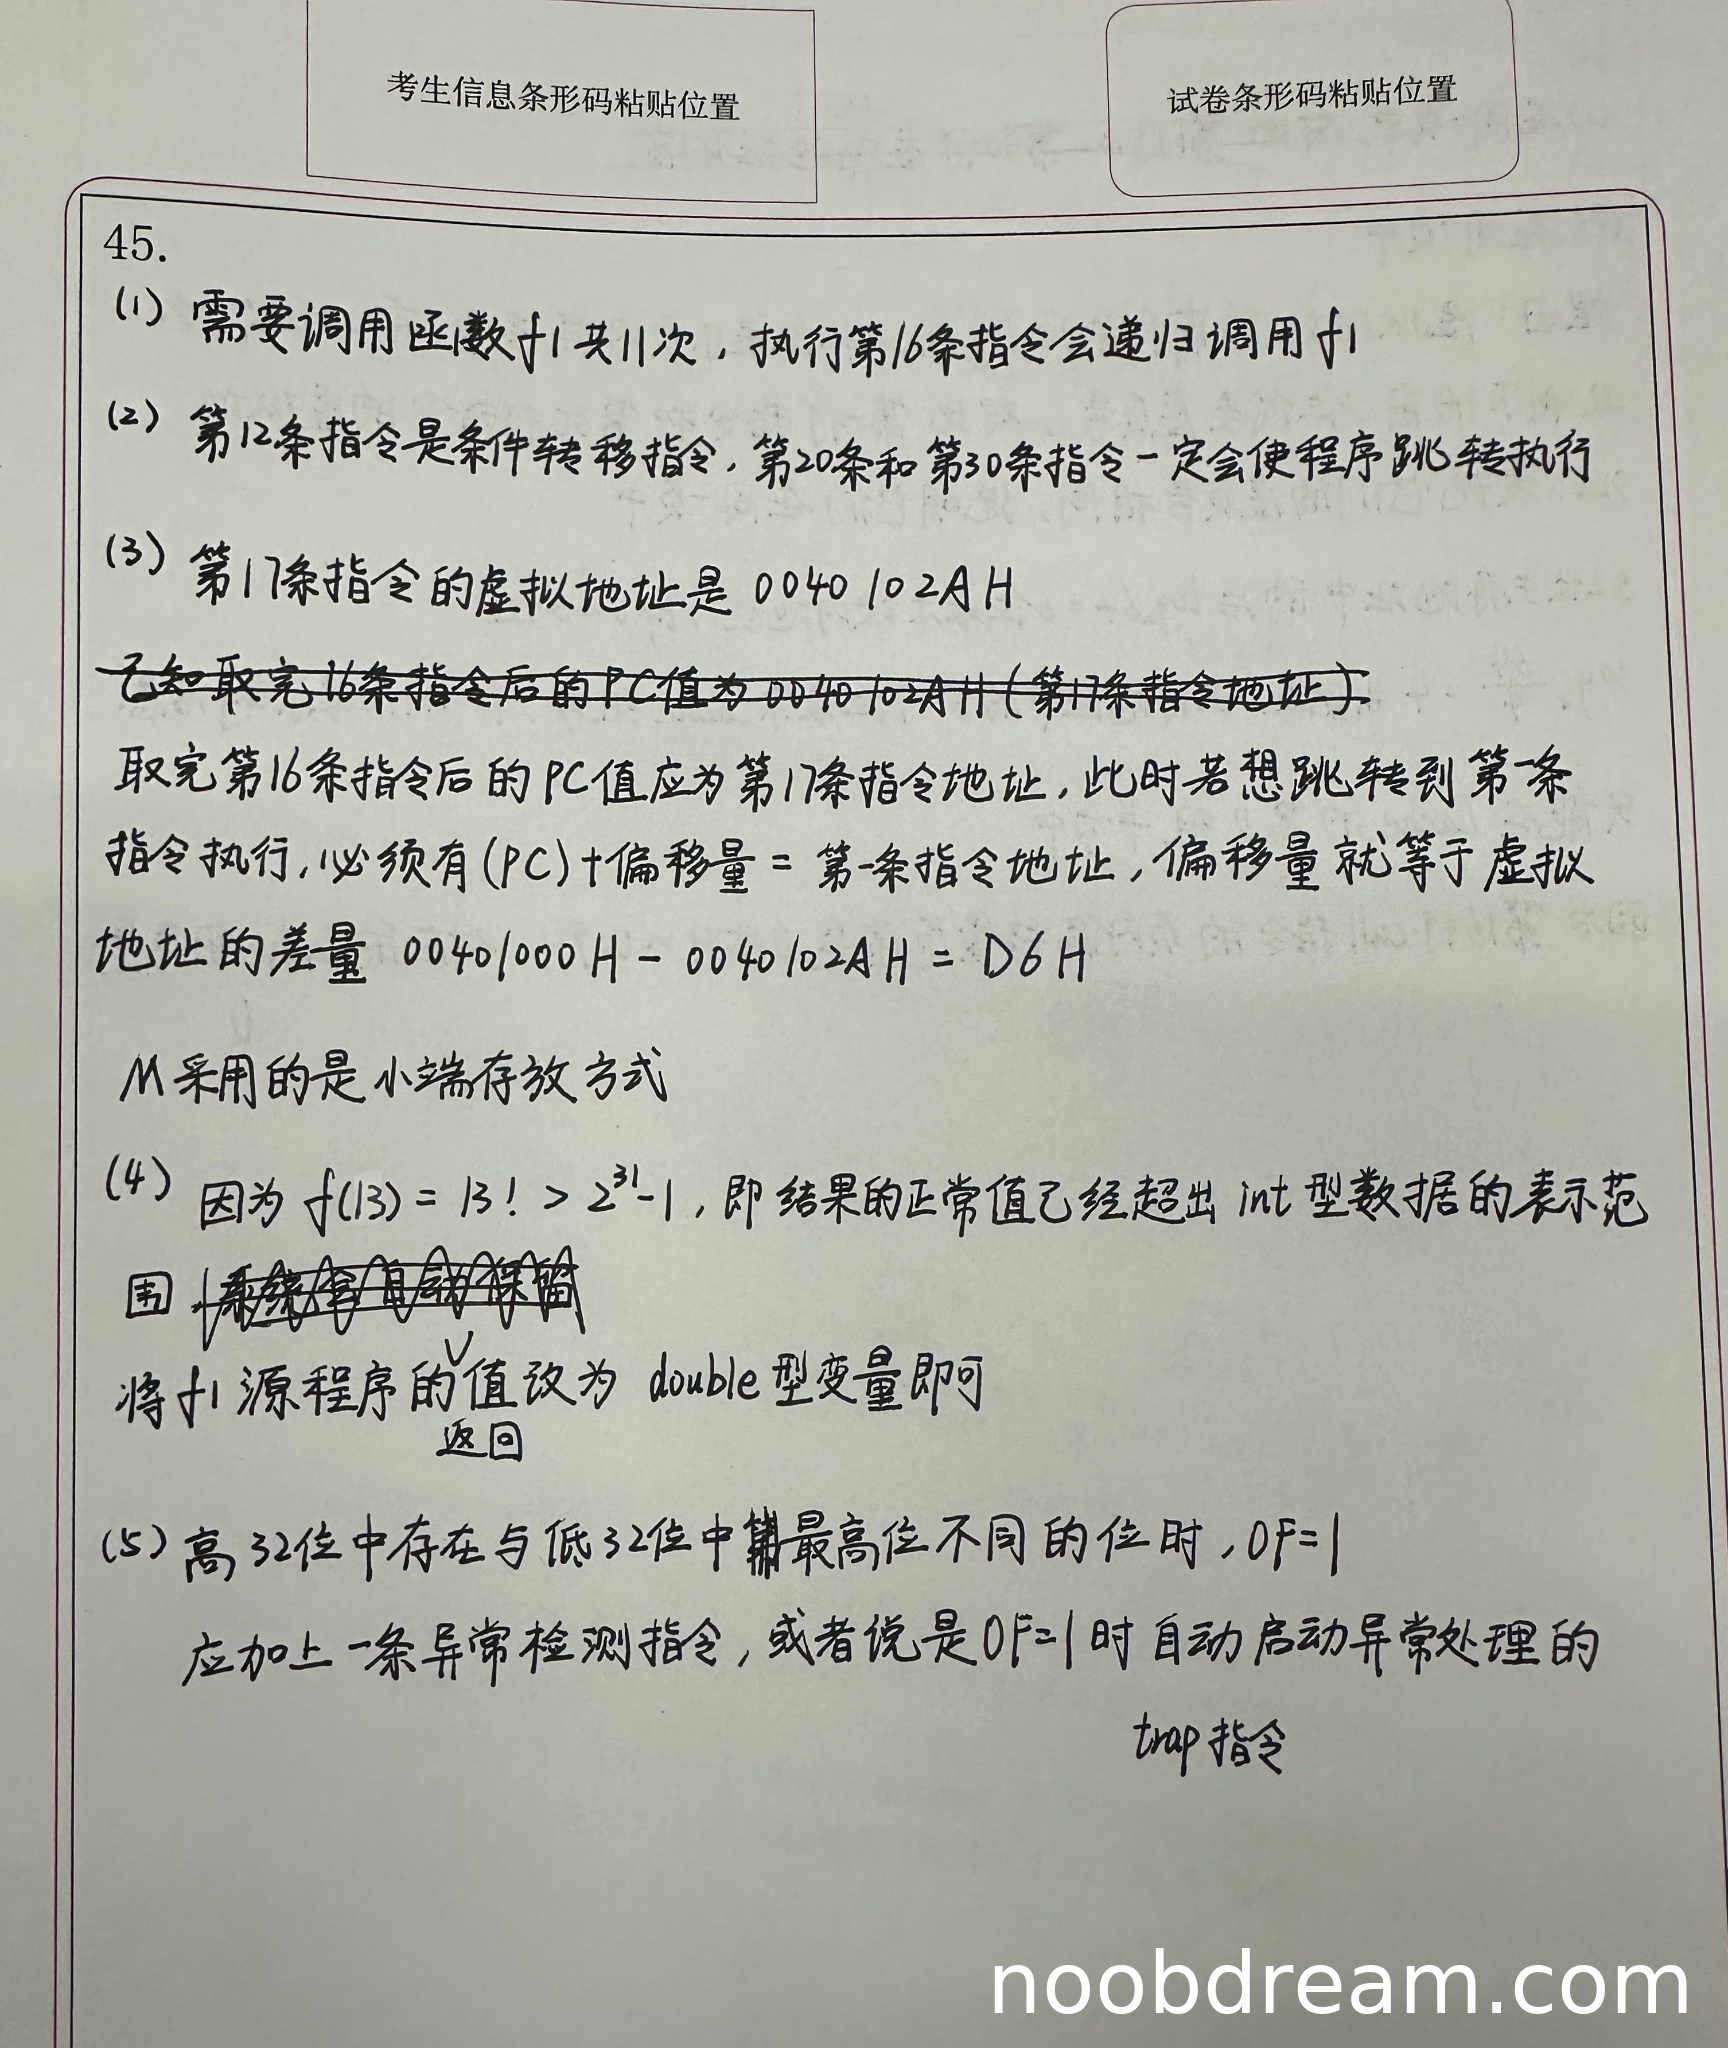 考生信息条形码粘贴位置
试卷条形码粘贴位置
45.
(1) 需要调用函数f1共11次，执行第16条指令会递归调用f1
(2) 第12条指令是条件转移指令，第20条和第30条指令一定会使程序跳转执行
(3) 第17条指令的虚拟地址是 0040 102A H
已知取完16条指令后的PC值为 0040 102A H (第17条指令地址)
取完第16条指令后的PC值应为第17条指令地址，此时若想跳转到第一条
指令执行，必须有(PC)+偏移量 = 第一条指令地址，偏移量就等于虚拟
地址的差量 00401000H - 0040102AH = D6H
M采用的是小端存放方式
(4) 因为 f(13) = 13! > 2^31-1，即结果的正常值已经超出 int 型数据的表示范
围，系统会自动保留
将f1源程序的返回值改为 double型变量即可
(5) 高32位中存在与低32位中最高位不同的位时，OF=1
应加上一条异常检测指令，或者说是OF=1时自动启动异常处理的
trap指令
noobdream.com